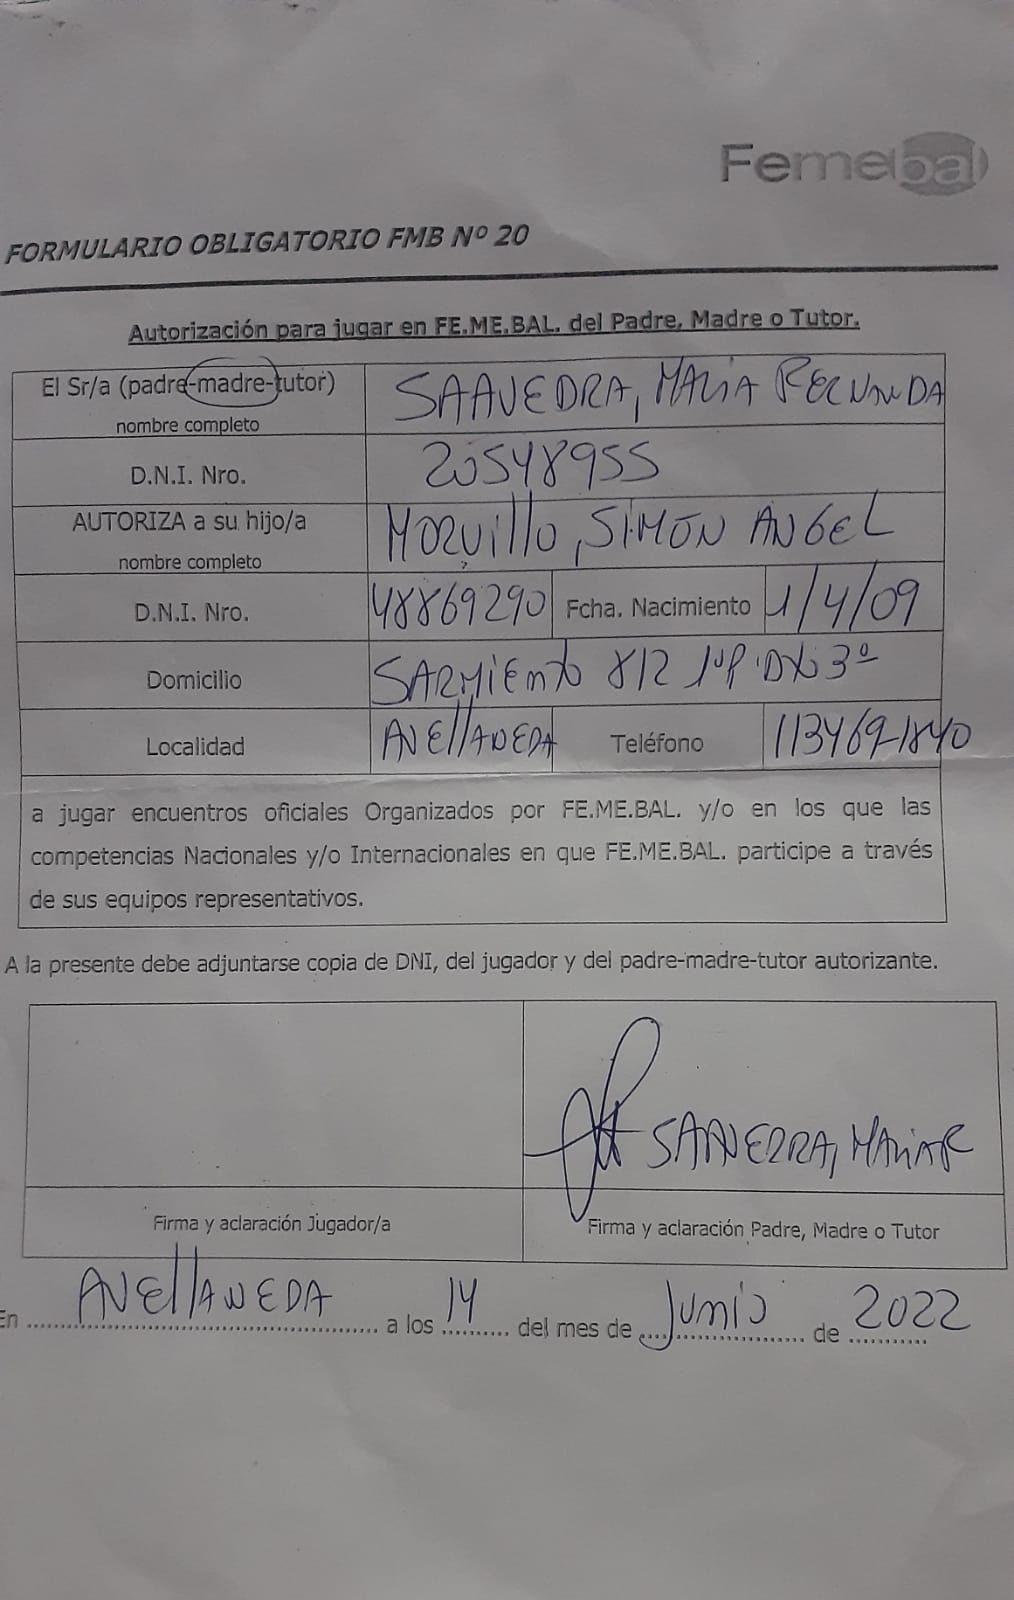 Femebal
FORMULARIO OBLIGATORIO FMB Nº 20
Autorización para jugar en FE.ME.BAL. del Padre, Madre o Tutor.
El Sr/a (padre-madre-tutor) SAAVEDRA, MARIA FERNANDA
nombre completo
D.N.I. Nro. 20548955
AUTORIZA a su hijo/a MORUILLO, SIMON ANGEL
nombre completo
D.N.I. Nro. 48869290 Fcha. Nacimiento 1/4/09
Domicilio SARMIENTO 812 1ºP 3º
Localidad AVELLANEDA Teléfono 1134691840
a jugar encuentros oficiales Organizados por FE.ME.BAL. y/o en los que las
competencias Nacionales y/o Internacionales en que FE.ME.BAL. participe a través
de sus equipos representativos.
A la presente debe adjuntarse copia de DNI, del jugador y del padre-madre-tutor autorizante.
SAAVEDRA, MARIA F
Firma y aclaración Jugador/a Firma y aclaración Padre, Madre o Tutor
En AVELLANEDA a los 14 del mes de JUNIO de 2022